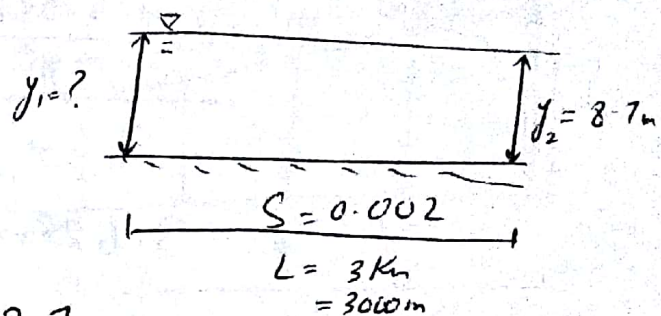 y₁=?
y₂ = 8.7m
S = 0.002
L = 3 Km
= 3000m